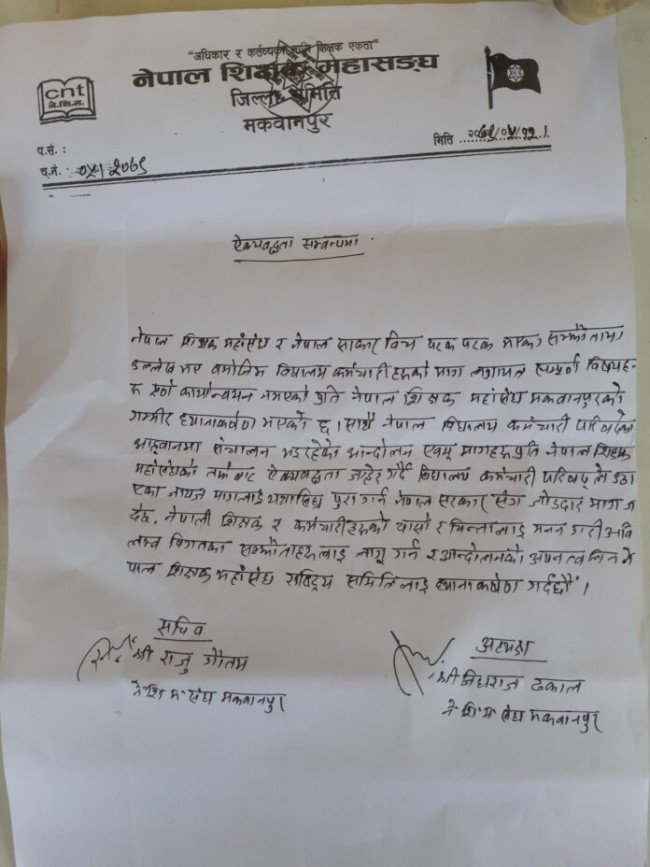 "अधिकार र कर्तव्यका लागि शिक्षक एकता"
नेपाल शिक्षक महासङ्घ
जिल्ला समिति
मकवानपुर
cnt
ने.शि.म.
प.सं. :
च.नं. : ०५।२०७९
मिति
ऐक्यवद्धता सम्वन्धमा.
नेपाल शिक्षक महासंघ र नेपाल सरकार विच पटक पटक भएका सम्झौतामा
उल्लेख भए वमोजिम विद्यालय कर्मचारीहरुको माग लगायत सम्पूर्ण विषयह-
रु कार्यान्वयन नभएको प्रति नेपाल शिक्षक महासंघ मकवानपुरको
गम्भीर ध्यानाकर्षण भएको छ । साथै नेपाल विद्यालय कर्मचारी परिषदको
आह्वानमा संचालन भइरहेको आन्दोलन एवम् मागहरु प्रति नेपाल शिक्षक
महासंघको तर्फ वाट ऐक्यवद्धता जाहेर गर्दै विद्यालय कर्मचारी परिषद् ले उठा
एका जायज मागलाई यथाशिघ्र पुरा गर्न नेपाल सरकार संग जोडदार माग ग
र्दछ. नेपाली शिक्षक र कर्मचारीहरुको चासो र चिन्तालाई मनन गरी अवि
लम्व विगतका सम्झौताहरुलाई लागू गर्न र आन्दोलनको अपनत्व लिन ने
पाल शिक्षक महासंघ राष्ट्रिय समितिलाई ध्यानाकर्षण गर्दछौं ।
सचिव
श्री राजु गौतम
ने.शि.म.संघ मकवानपुर
अध्यक्ष
श्री ढकाल
ने.शि.म.संघ मकवानपुर